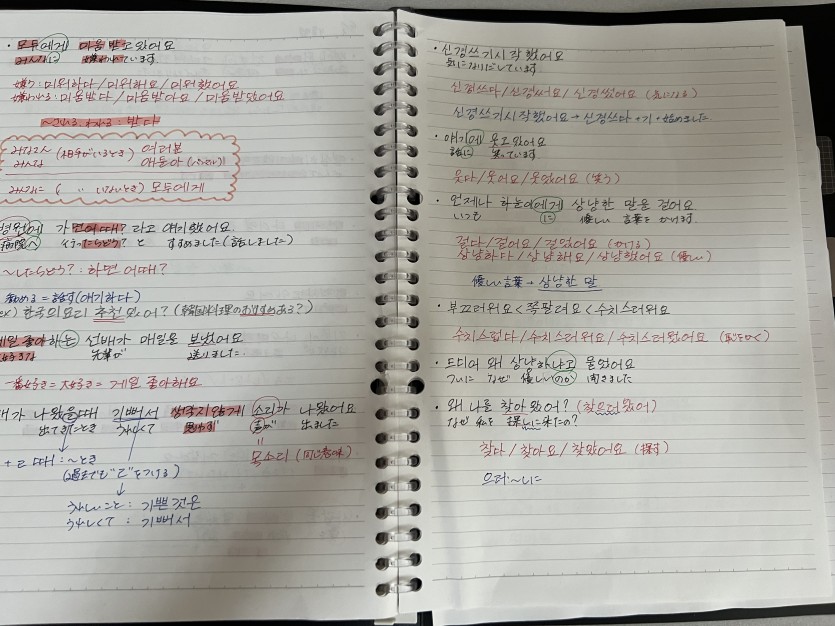 ・모두에게 미움받고있어요
みんなに 嫌われています
嫌う:미워하다/미워해요/미워했어요
嫌われる:미움받다/미움받아요/미움받았어요
~される、われる:받다
みなさん (相手がいるとき) 여러분
みんな 얘들아
みんなに ( 〃 いないとき) 모두에게
병원에 가면어때?라고 얘기했어요.
病院へ 行ったらどう?と すすめました(話しました)
~したらどう?:하면 어때?
勧める=話す(얘기하다)
ex) 한국의요리 추천있어?(韓国料理のおすすめある?)
제일 좋아하는 선배가 매일을 보냈어요
大好きな 先輩が 送りました.
一番好き=大好き=제일 좋아해요
가 나왔을때 기뻐서 생각지않게 소리가 나왔어요
出てきたとき うれしくて 思わず 声が 出ました
+ㄹ때:~とき 목소리 (同じ意味)
うれしいこと:기쁜것은
うれしくて:기뻐서
・신경쓰기시작했어요
気になりだしています
신경쓰다/신경써요/신경썼어요 (気になる)
신경쓰기시작했어요→신경쓰다+기+始めました
・얘기에 웃고있어요
話に 笑っています
웃다/웃어요/웃었어요 (笑う)
・언제나 하는이에게 상냥한 말을 걸어요
いつも に 優しい 言葉を かけます.
걸다/걸어요/걸었어요 (かける)
상냥하다/상냥해요/상냥했어요 (優しい)
優しい言葉→상냥한 말
・부끄러워요<쪽팔려요<수치스러워요
수치스럽다/수치스러워요/수치스러웠어요 (恥をかく)
・드디어 왜 상냥하냐고 물었어요
ついに なぜ 優しいのか 聞きました
・왜 나를 찾아왔어?(찾으러왔어)
なぜ 私を 探しに来たの?
찾다/찾아요/찾았어요 (探す)
으러:~しに